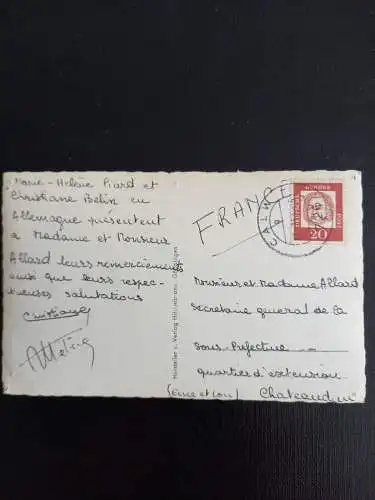 Marie-Helène Piaret et
Christiane Belin en
Allemagne présentent
a Madame et Monsieur
Allard leurs remerciements
ainsi que leurs respec-
tueuses salutations
Christiane
FRANCE
CALW
DEUTSCHE
POST
20
Hersteller u. Verlag
Monsieur et Madame Allard
Secretaire general de la
Sous-Prefecture
quartier d'extension
(Eure et Loir) Chateaudun